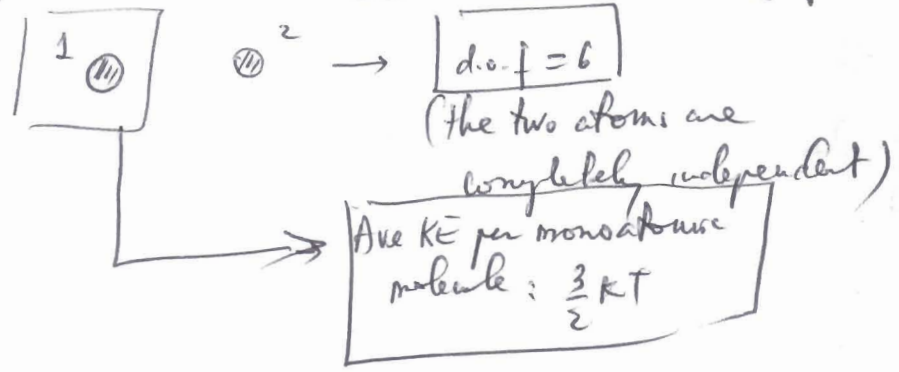 1 2 → d.o.f = 6
(the two atoms are
completely independent)
Ave KE per monoatomic
molecule : 3/2 KT